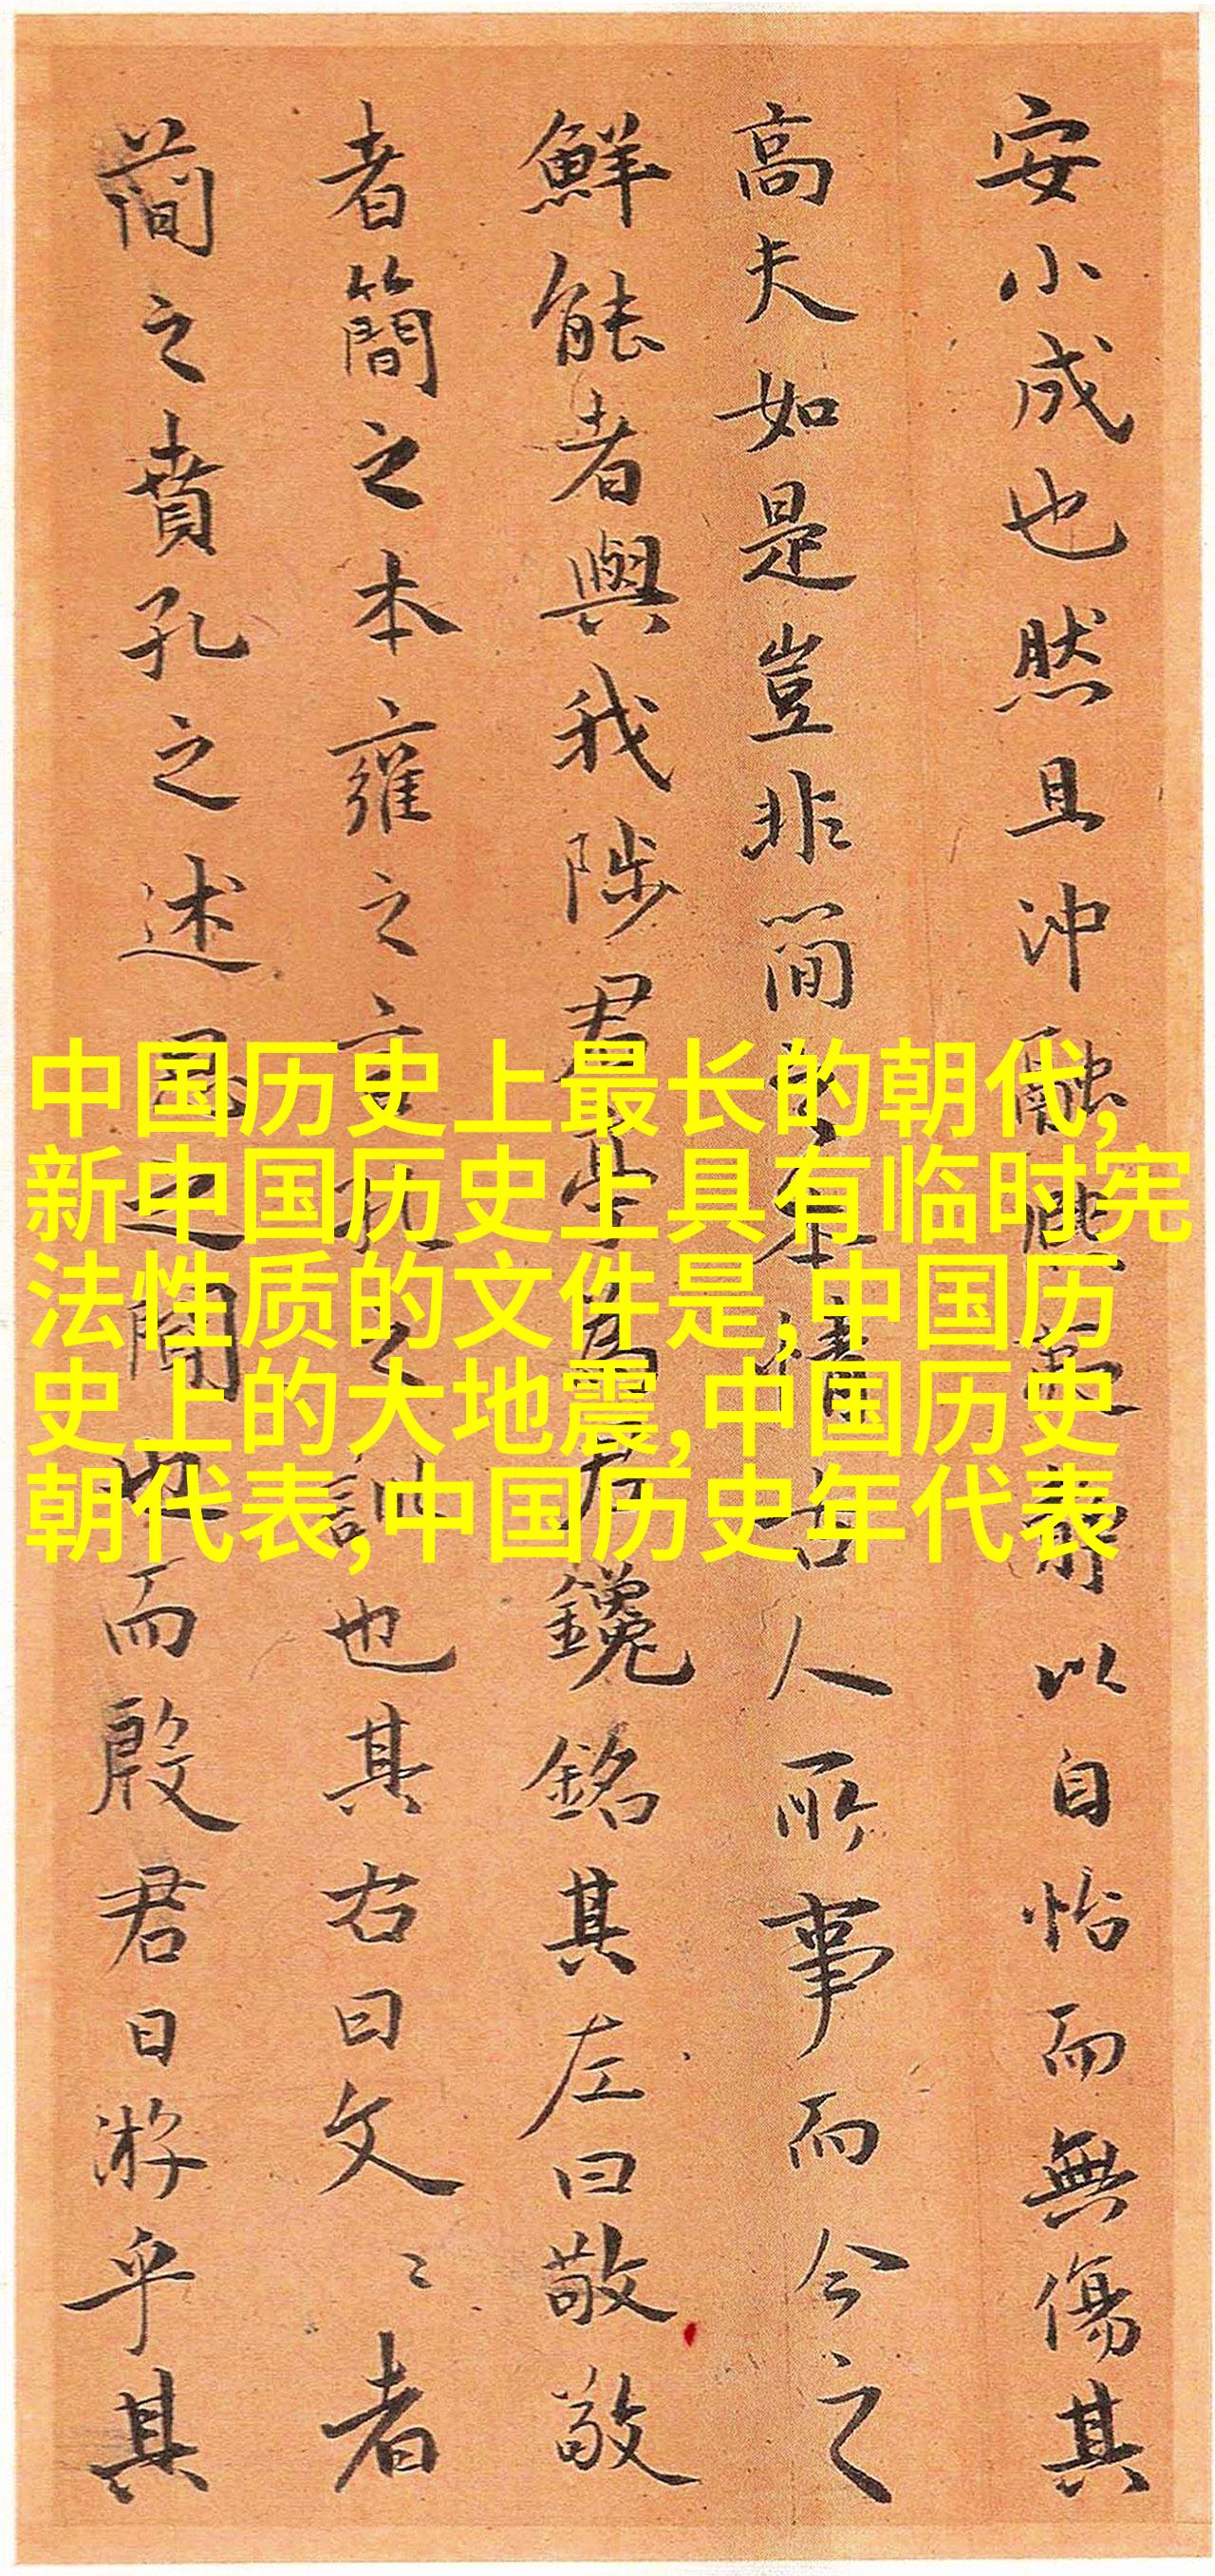 安小成也然且沖融熙夷靜以自怡而無傷其
高夫如是豈非簡之本情古人所事而今之
鮮能者與我陟君其亭為君鑱銘其左曰敬敬
者簡之本雍之言執之訓也其右曰文〻者
簡之賁孔之述思之闇也而殷君日游乎其
中国历史上最长的朝代,
新中国历史上具有临时宪
法性质的文件是,中国历
史上的大地震,中国历史
朝代表,中国历史年代表